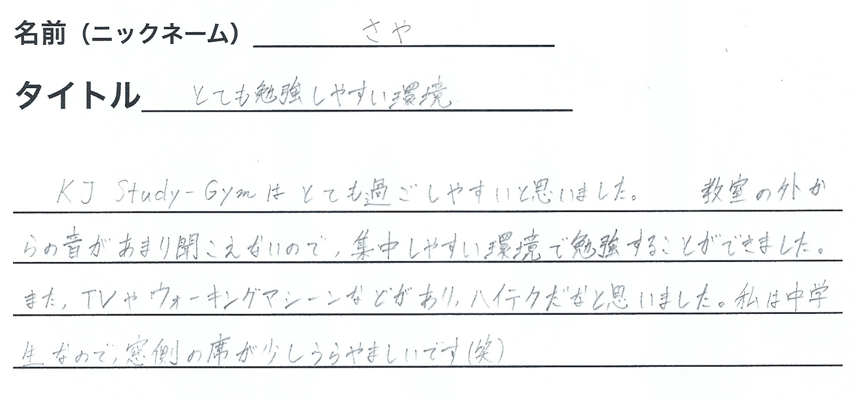 名前（ニックネーム） さや
タイトル とても勉強しやすい環境
KJ Study-Gymはとても過ごしやすいと思いました。 教室の外か
らの音があまり聞こえないので、集中しやすい環境で勉強することができました。
また、TVやウォーキングマシーンなどがあり、ハイテクだなと思いました。私は中学
生なので、窓側の席が少しうらやましいです(笑)